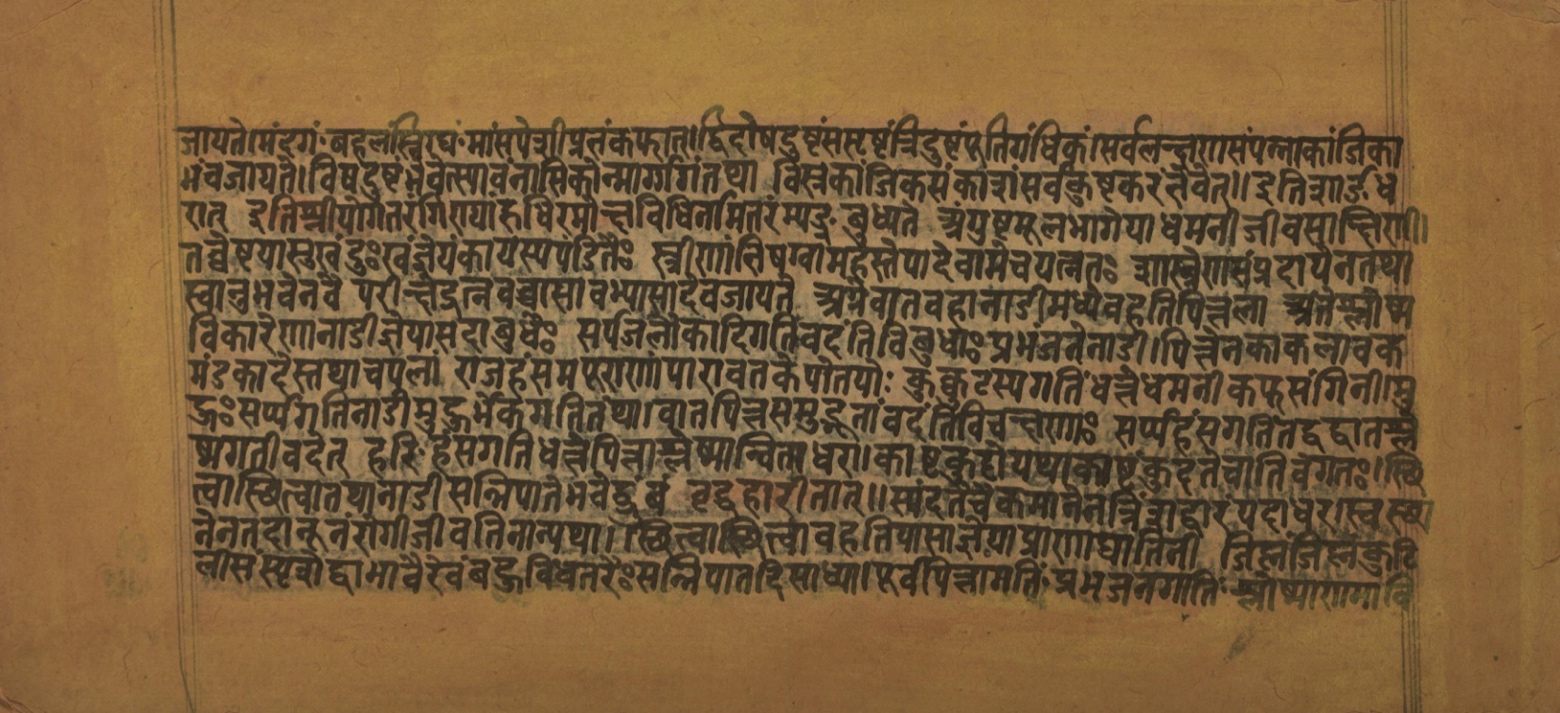 जायते।मंदगं बहलांस्निग्धं मांसपेशीप्रतंकफात्॥द्विदोषदुष्टंसंसृष्टंत्रिदुष्टंपूतिगंधिकं।सर्वलक्षणसंपन्नाकांजिका
भंचजायते।विषदुष्टंभवेत्स्रावंनासिकोन्मार्ग्गगंतथा विस्रंकांजिकसंकाशंसर्वकुष्टकरंतैवेत्॥इतिशार्ङध
रात् इतिश्रीयोगतरंगिण्यां रुधिरमोक्षविधिर्नामतरंग्यङः बुध्यते अंगुष्टमूलभागेयाधमनीजीवसाक्षिणी।
तच्चेष्टयासुखंदुःखंज्ञेयंकायस्यपंडितैः स्त्रीणांभिषग्वामहस्तेपादेवामेचयत्नतः शास्त्रेणसंप्रदायेनतथा
स्वानुभवेनवै परीक्षेद्रत्नवच्चासावभ्यासादेवजायते अग्रेवातवहानाडीमध्येवहतिपित्तला अंतेश्लेष्म
विकारेणनाडीज्ञेयासदाबुधैः सर्पजलौकादिगतिंवदंतिविबुधाः प्रभंजनेनाडीं।पित्तेनकाकलावक
मंडकादेस्तथाचपलां राजहंसमयूराणांपारावतकपोतयोः कुकुटस्यगतिंधत्तेधमनीकफसंगिनी।मु
हुःसर्प्पगतिनाडीमुहुर्भेकगतितथा।वातपित्तसमुद्भूतांवदंतिविचक्षणाः सर्प्पहंसगतितद्वद्वातश्ले
ष्मगतीवदेत् हरिहंसगतिंधत्तेपित्तश्लेष्मान्विताधरा।काष्टकुट्टोयथाकाष्टंकुदतेचातिवेगतः।स्थि
त्वास्थित्वातथानाडीसन्निपातेभवेद्ध्रुवं वृद्धहारीतात्॥स्पंदतेचैकमानेनत्रिंशद्वारंयदाधरा।स्वस्था
नेनतदानूनंरोगीजीवतिनान्यथा। स्थित्वास्थित्वावहतियासाज्ञेयाप्राणघातिनी जिह्मंजिह्मंकुटि
लीसंस्पृशेद्वाभावैरेवंबहुविधतरैःसन्निपातदिसाध्या।पूर्वंपित्तागतिं प्रभंजनगतिं श्लेष्माणमावि